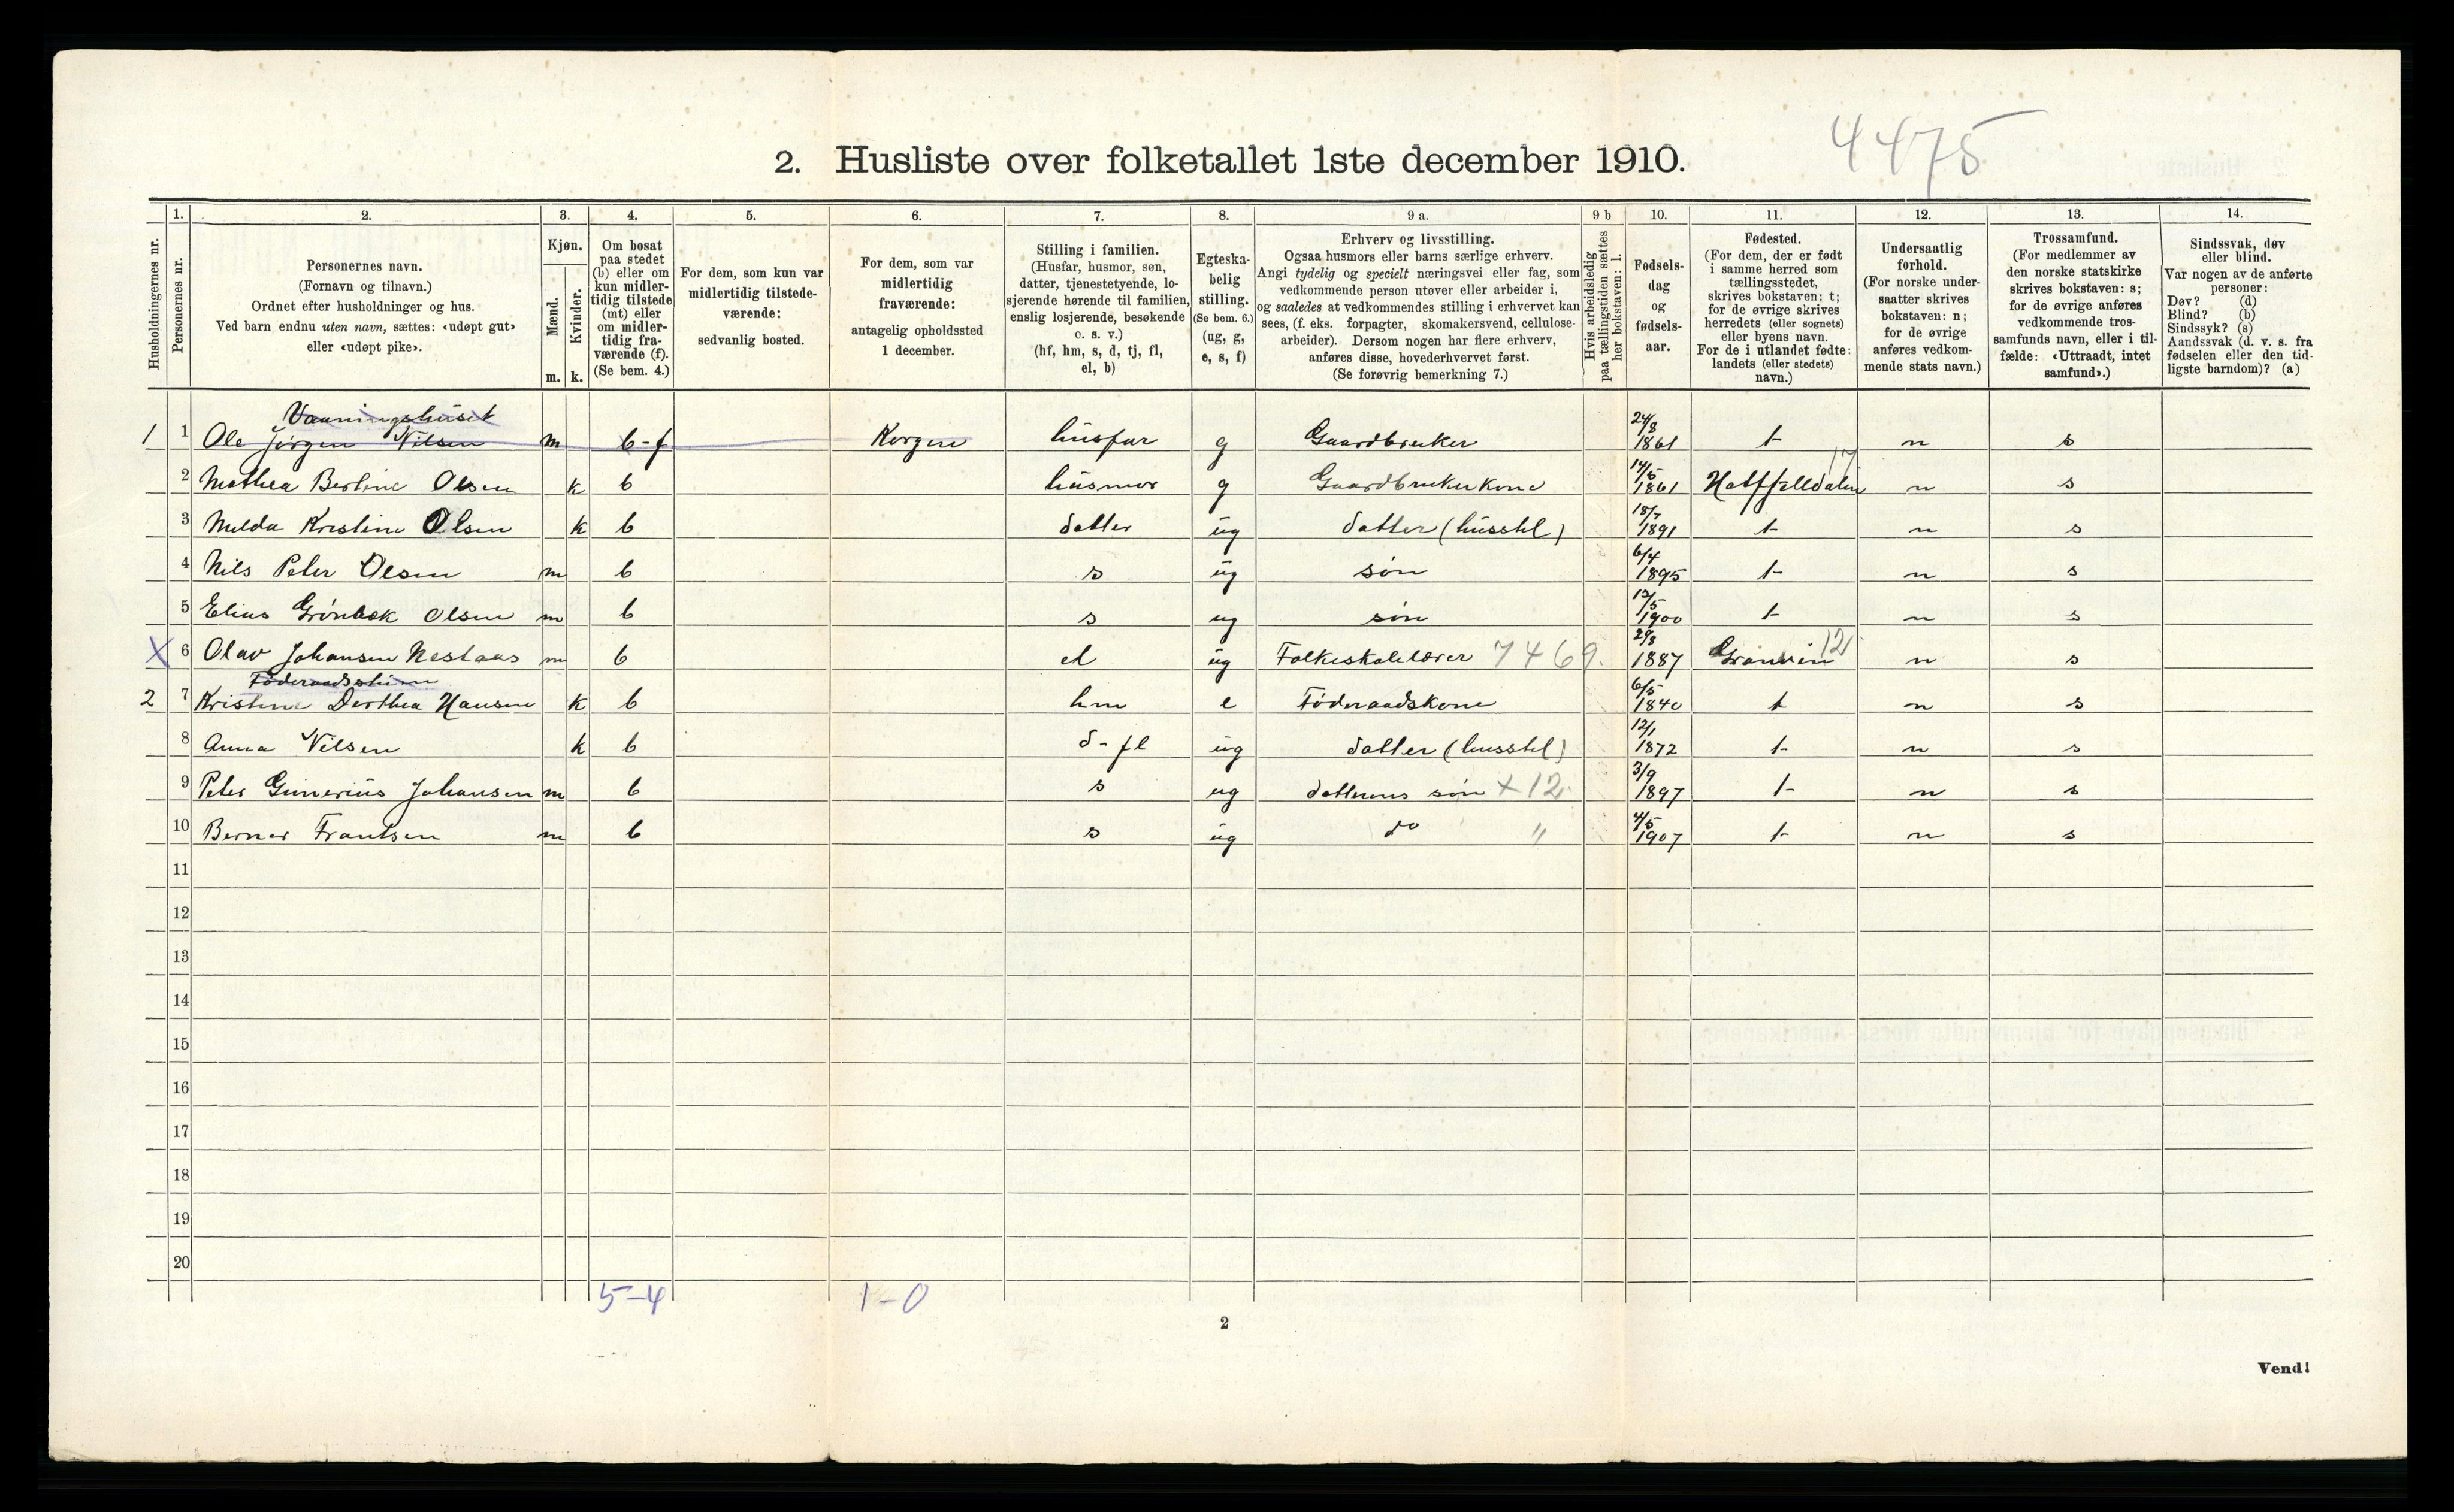 4475
2. Husliste over folketallet 1ste december 1910.
Husholdningernes nr.
1. Personernes nr.
2. Personernes navn.
(Fornavn og tilnavn.)
Ordnet efter husholdninger og hus.
Ved barn endnu uten navn, sættes: «udøpt gut»
eller «udøpt pike».
3. Kjøn.
Mænd. m.
Kvinder. k.
4. Om bosat
paa stedet
(b) eller om
kun midler-
tidig tilstede
(mt) eller
om midler-
tidig fra-
værende (f).
(Se bem. 4.)
5. For dem, som kun var
midlertidig tilstede-
værende:
sedvanlig bosted.
6. For dem, som var
midlertidig
fraværende:
antagelig opholdssted
1 december.
7. Stilling i familien.
(Husfar, husmor, søn,
datter, tjenestetyende, lo-
sjerende hørende til familien,
enslig losjerende, besøkende
o. s. v.)
(hf, hm, s, d, tj, fl,
el, b)
8. Egteska-
belig
stilling.
(Se bem. 6.)
(ug, g,
e, s, f)
9 a. Erhverv og livsstilling.
Ogsaa husmors eller barns særlige erhverv.
Angi tydelig og specielt næringsvei eller fag, som
vedkommende person utøver eller arbeider i,
og saaledes at vedkommendes stilling i erhvervet kan
sees, (f. eks. forpagter, skomakersvend, cellulose-
arbeider). Dersom nogen har flere erhverv,
anføres disse, hovederhvervet først.
(Se forøvrig bemerkning 7.)
9 b Hvis arbeidsledig
paa tællingstiden sættes
her bokstaven: l.
10. Fødsels-
dag
og
fødsels-
aar.
11. Fødested.
(For dem, der er født
i samme herred som
tællingsstedet,
skrives bokstaven: t;
for de øvrige skrives
herredets (eller sognets)
eller byens navn.
For de i utlandet fødte:
landets (eller stedets)
navn.)
12. Undersaatlig
forhold.
(For norske under-
saatter skrives
bokstaven: n;
for de øvrige
anføres vedkom-
mende stats navn.)
13. Trossamfund.
(For medlemmer av
den norske statskirke
skrives bokstaven: s;
for de øvrige anføres
vedkommende tros-
samfunds navn, eller i til-
fælde: «Uttraadt, intet
samfund».)
14. Sindssvak, døv
eller blind.
Var nogen av de anførte
personer:
Døv? (d)
Blind? (b)
Sindssyk? (s)
Aandssvak (d. v. s. fra
fødselen eller den tid-
ligste barndom)? (a)
Vaaningshuset
1 1 Ole Jørgen Nilsen m b-f Korgen husfar g Gaardbruker 24/8 1861 t n s
2 Mathea Berline Olsen k b husmor g Gaardbrukerkone 14/5 1861 Hatfjelldalen 17 n s
3 Milda Kristine Olsen k b datter ug datter (husstel) 18/7 1891 t n s
4 Nils Peter Olsen m b s ug søn 6/4 1895 t n s
5 Elias Grønbek Olsen m b s ug søn 12/5 1900 t n s
X 6 Olav Johansen Nestaas m b el ug Folkeskolelærer 7469. 29/8 1887 Granvin 12 n s
2 7 Kristine Dorthea Hansen k b hm e Føderaadskone 6/5 1840 t n s
8 Anna Nilsen k b d-fl ug datter (husstel) 12/1 1872 t n s
9 Peter Gunerius Johansen m b s ug datterens søn x 12 3/9 1897 t n s
10 Bernar Frantsen m b s ug do " 4/5 1907 t n s
11
12
13
14
15
16
17
18
19
20
5-4 1-0
2
Vend!